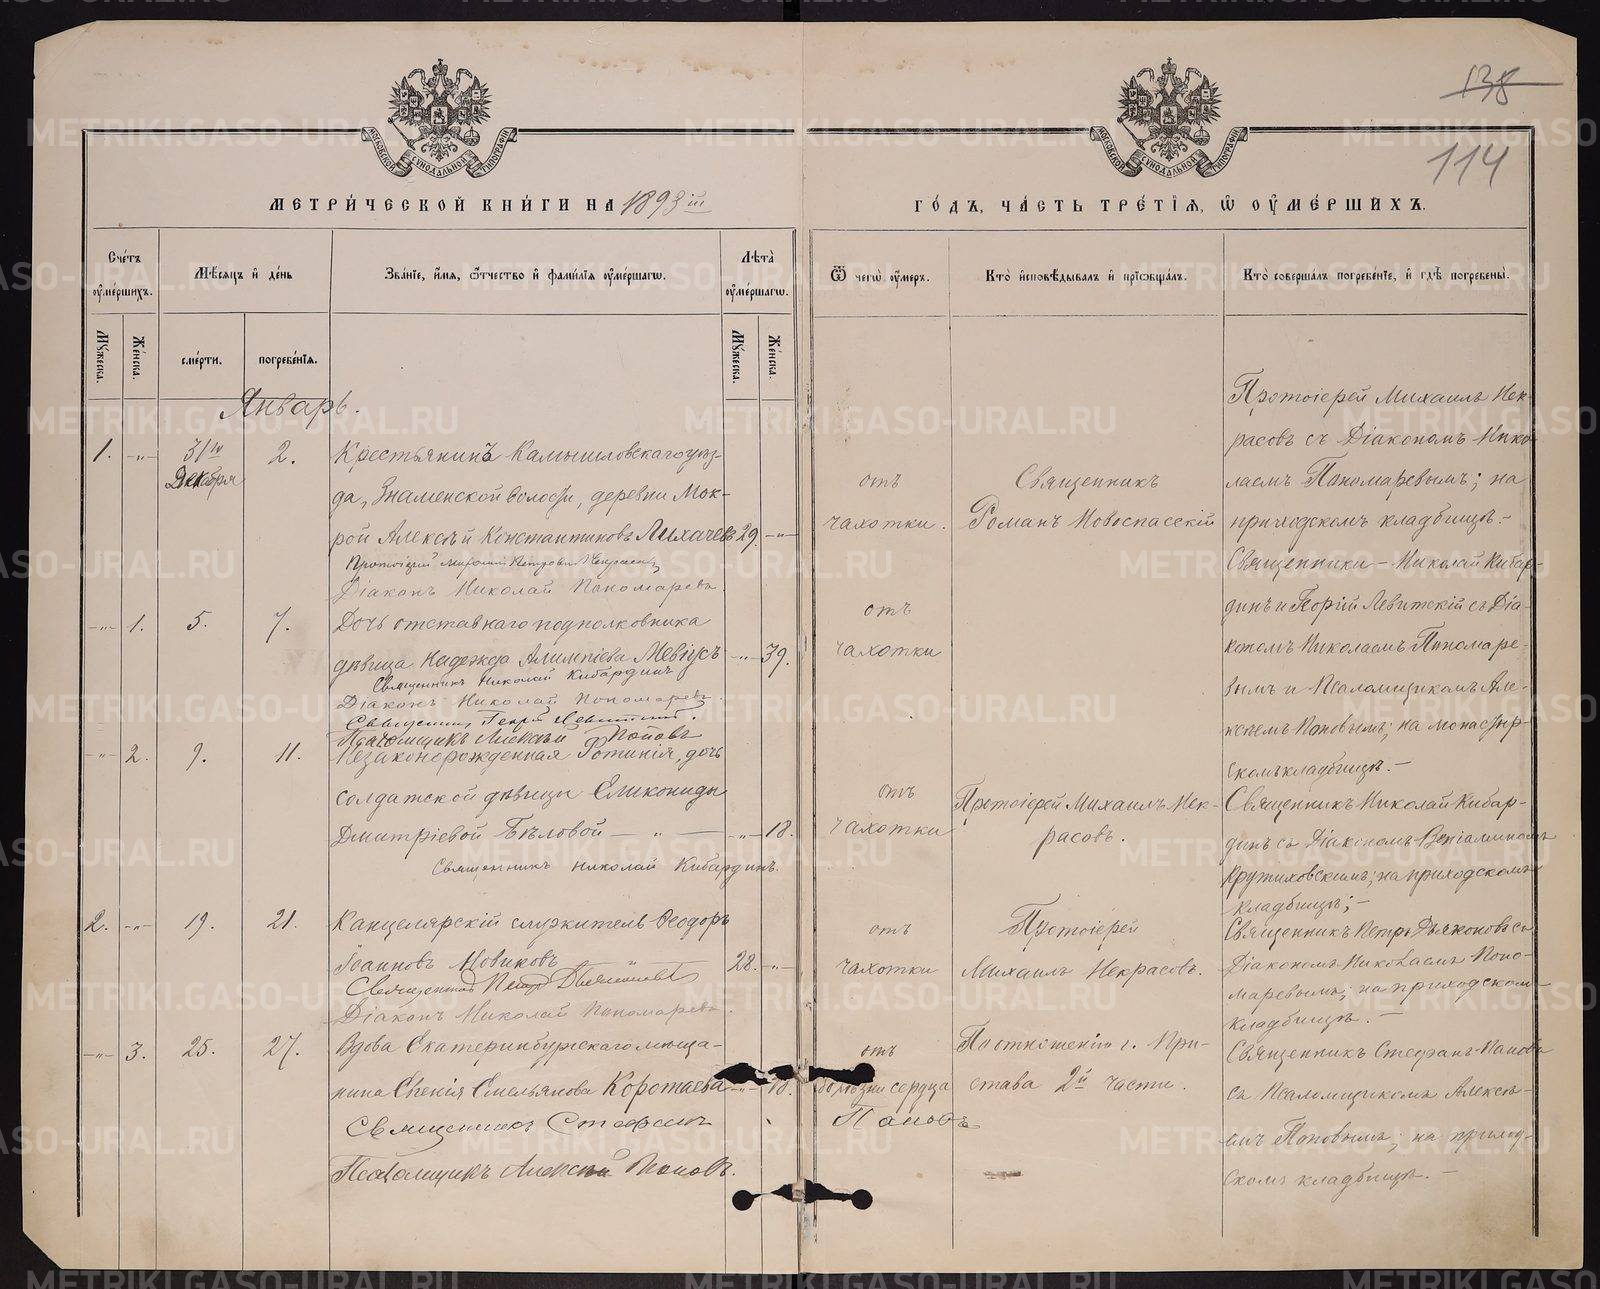 138
114
МОСКОВСКОЙ СѴНОДАЛЬНОЙ ТИПОГРАФІИ
МОСКОВСКОЙ СѴНОДАЛЬНОЙ ТИПОГРАФІИ
МЕТРИ́ЧЕСКОЙ КНИ́ГИ НА 1893й
ГО́ДЪ, ЧА́СТЬ ТРЕ́ТІЯ, Ѡ҆ ОУ҆МЕ́РШИХЪ.
Сче́тъ оу҆ме́ршихъ.
Мѣ́сяцъ и҆ де́нь
Зва́нїе, и҆́мя, ѻ҆́тчество и҆ фами́лїя оу҆ме́ршагѡ.
Лѣ́та оу҆ме́ршагѡ.
Ѿ чегѡ̀ оу҆́меръ.
Кто̀ и҆сповѣ́дывалъ и҆ прїѡбща́лъ.
Кто̀ соверша́лъ погребе́нїе, и҆ гдѣ̀ погребены̀.
Му́жеска.
Же́нска.
сме́рти.
погребе́нїя.
Му́жеска.
Же́нска.
Январь.
1. -„- 31го Декабря 2.
Крестьянинъ Камышловскаго уѣз-
да, Знаменской волости, деревни Мок-
рой Алексѣй Константиновъ Лихачевъ 29. -„-
Діаконъ Николай Пономаревъ.
отъ
чахотки.
Священникъ
Романъ Новоспасскій
Протоіерей Михаилъ Нек-
расовъ съ Діакономъ Нико-
лаемъ Пономаревымъ; на
приходскомъ кладбищѣ.-
-„- 1. 5. 7.
Дочь отставнаго подполковника
дѣвица Надежда Алимпіева Мевіусъ -„- 39.
Священникъ Николай Кибардинъ
Діаконъ Николай Пономаревъ.
Священникъ Георгій Левитскій.
Псаломщикъ Алексѣй Поповъ
отъ
чахотки
Священники - Николай Кибар-
динъ и Георгій Левитскій съ Діа-
кономъ Николаемъ Пономаре-
вымъ и Псаломщикомъ Але-
ксѣемъ Поповымъ; на монастыр-
скомъ кладбищѣ.-
-„- 2. 9. 11.
Незаконорожденная Фотинія, дочь
солдатской дѣвицы Еликониды
Дмитріевой Бѣловой - „ - -„- 18.
Священникъ Николай Кибардинъ.
отъ
чахотки
Протоіерей Михаилъ Нек-
расовъ.
Священникъ Николай Кибар-
динъ съ Діакономъ Веніаминомъ
Крутиховскимъ; на приходскомъ
кладбищѣ;-
2. -„- 19. 21.
Канцелярскій служитель Ѳеодоръ
Іоанновъ Новиковъ - „ - 28. -„-
Священникъ Петръ Дьяконовъ
Діаконъ Николай Пономаревъ.
отъ
чахотки
Протоіерей
Михаилъ Некрасовъ.
Священникъ Петръ Дьяконовъ съ
Діакономъ Николаемъ Поно-
маревымъ; на приходскомъ
кладбищѣ.-
-„- 3. 25. 27.
Вдова Екатеринбургскаго мѣща-
нина Евгенія Емельянова Коротаева -„-
Священникъ Стефанъ Поповъ
Псаломщикъ Алексѣй Поповъ.
отъ
болѣзни сердца
По отношенію г. При-
става 2й части.
Священникъ Стефанъ Поповъ
съ Псаломщикомъ Алексѣ-
емъ Поповымъ; на приход-
скомъ кладбищѣ.-
METRIKI.GASO-URAL.RU